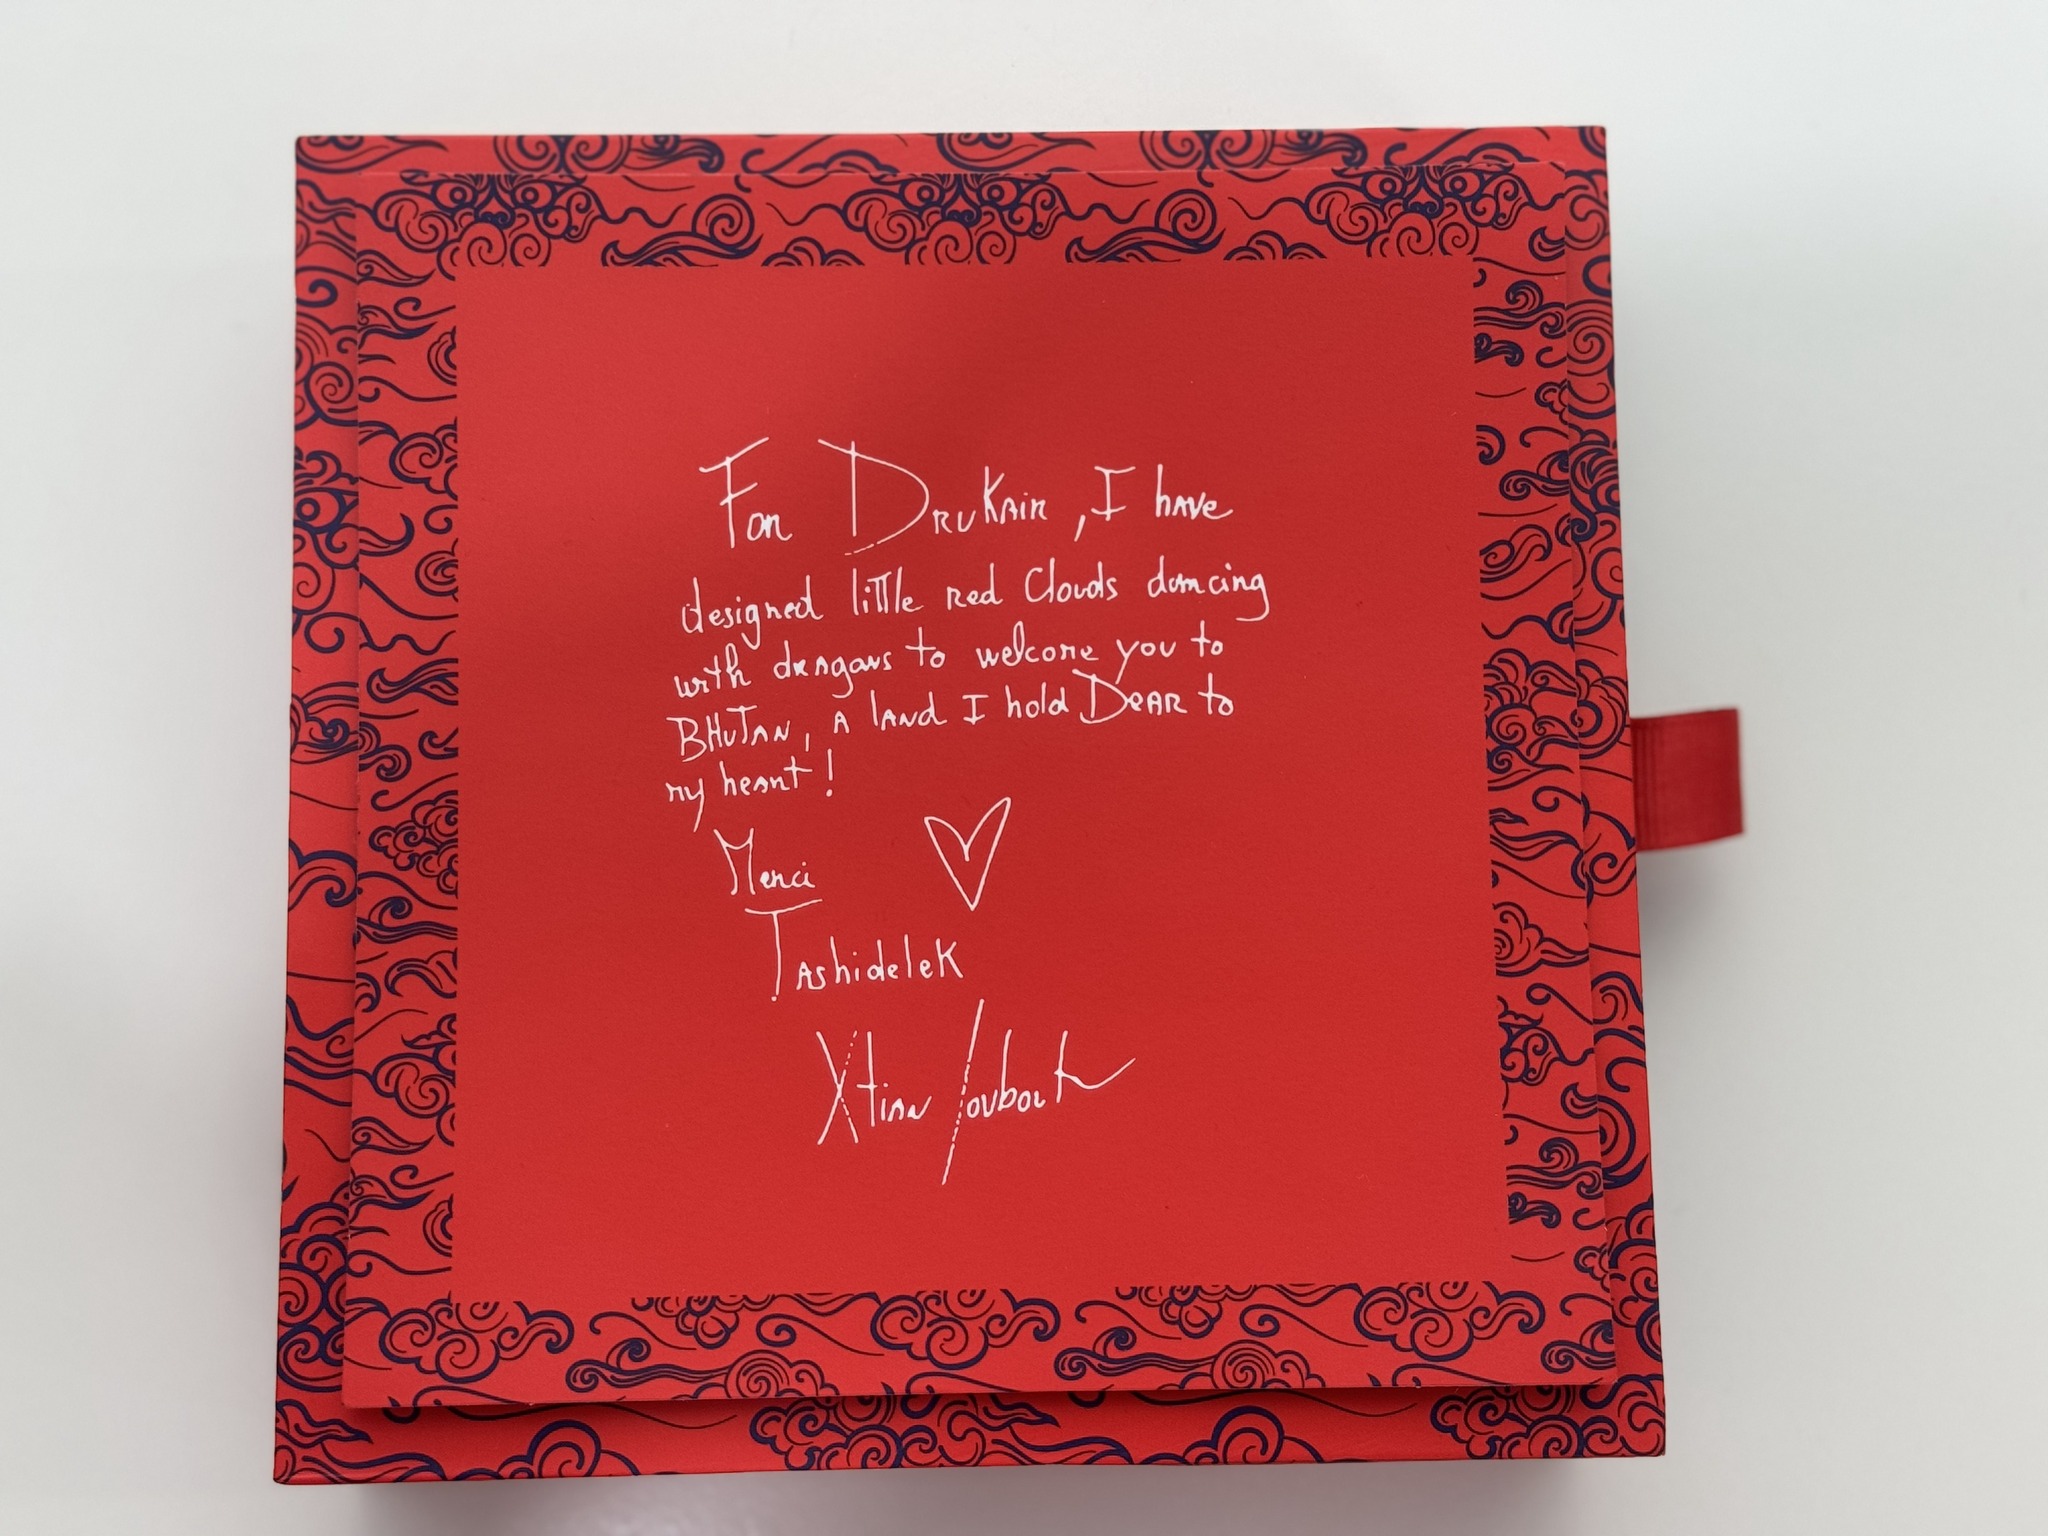 For DRUKAIR, I have
designed little red Clouds dancing
with dragons to welcome you to
BHUTAN, A LAND I hold DEAR to
my heart!
Merci
Tashidelek
Xtian